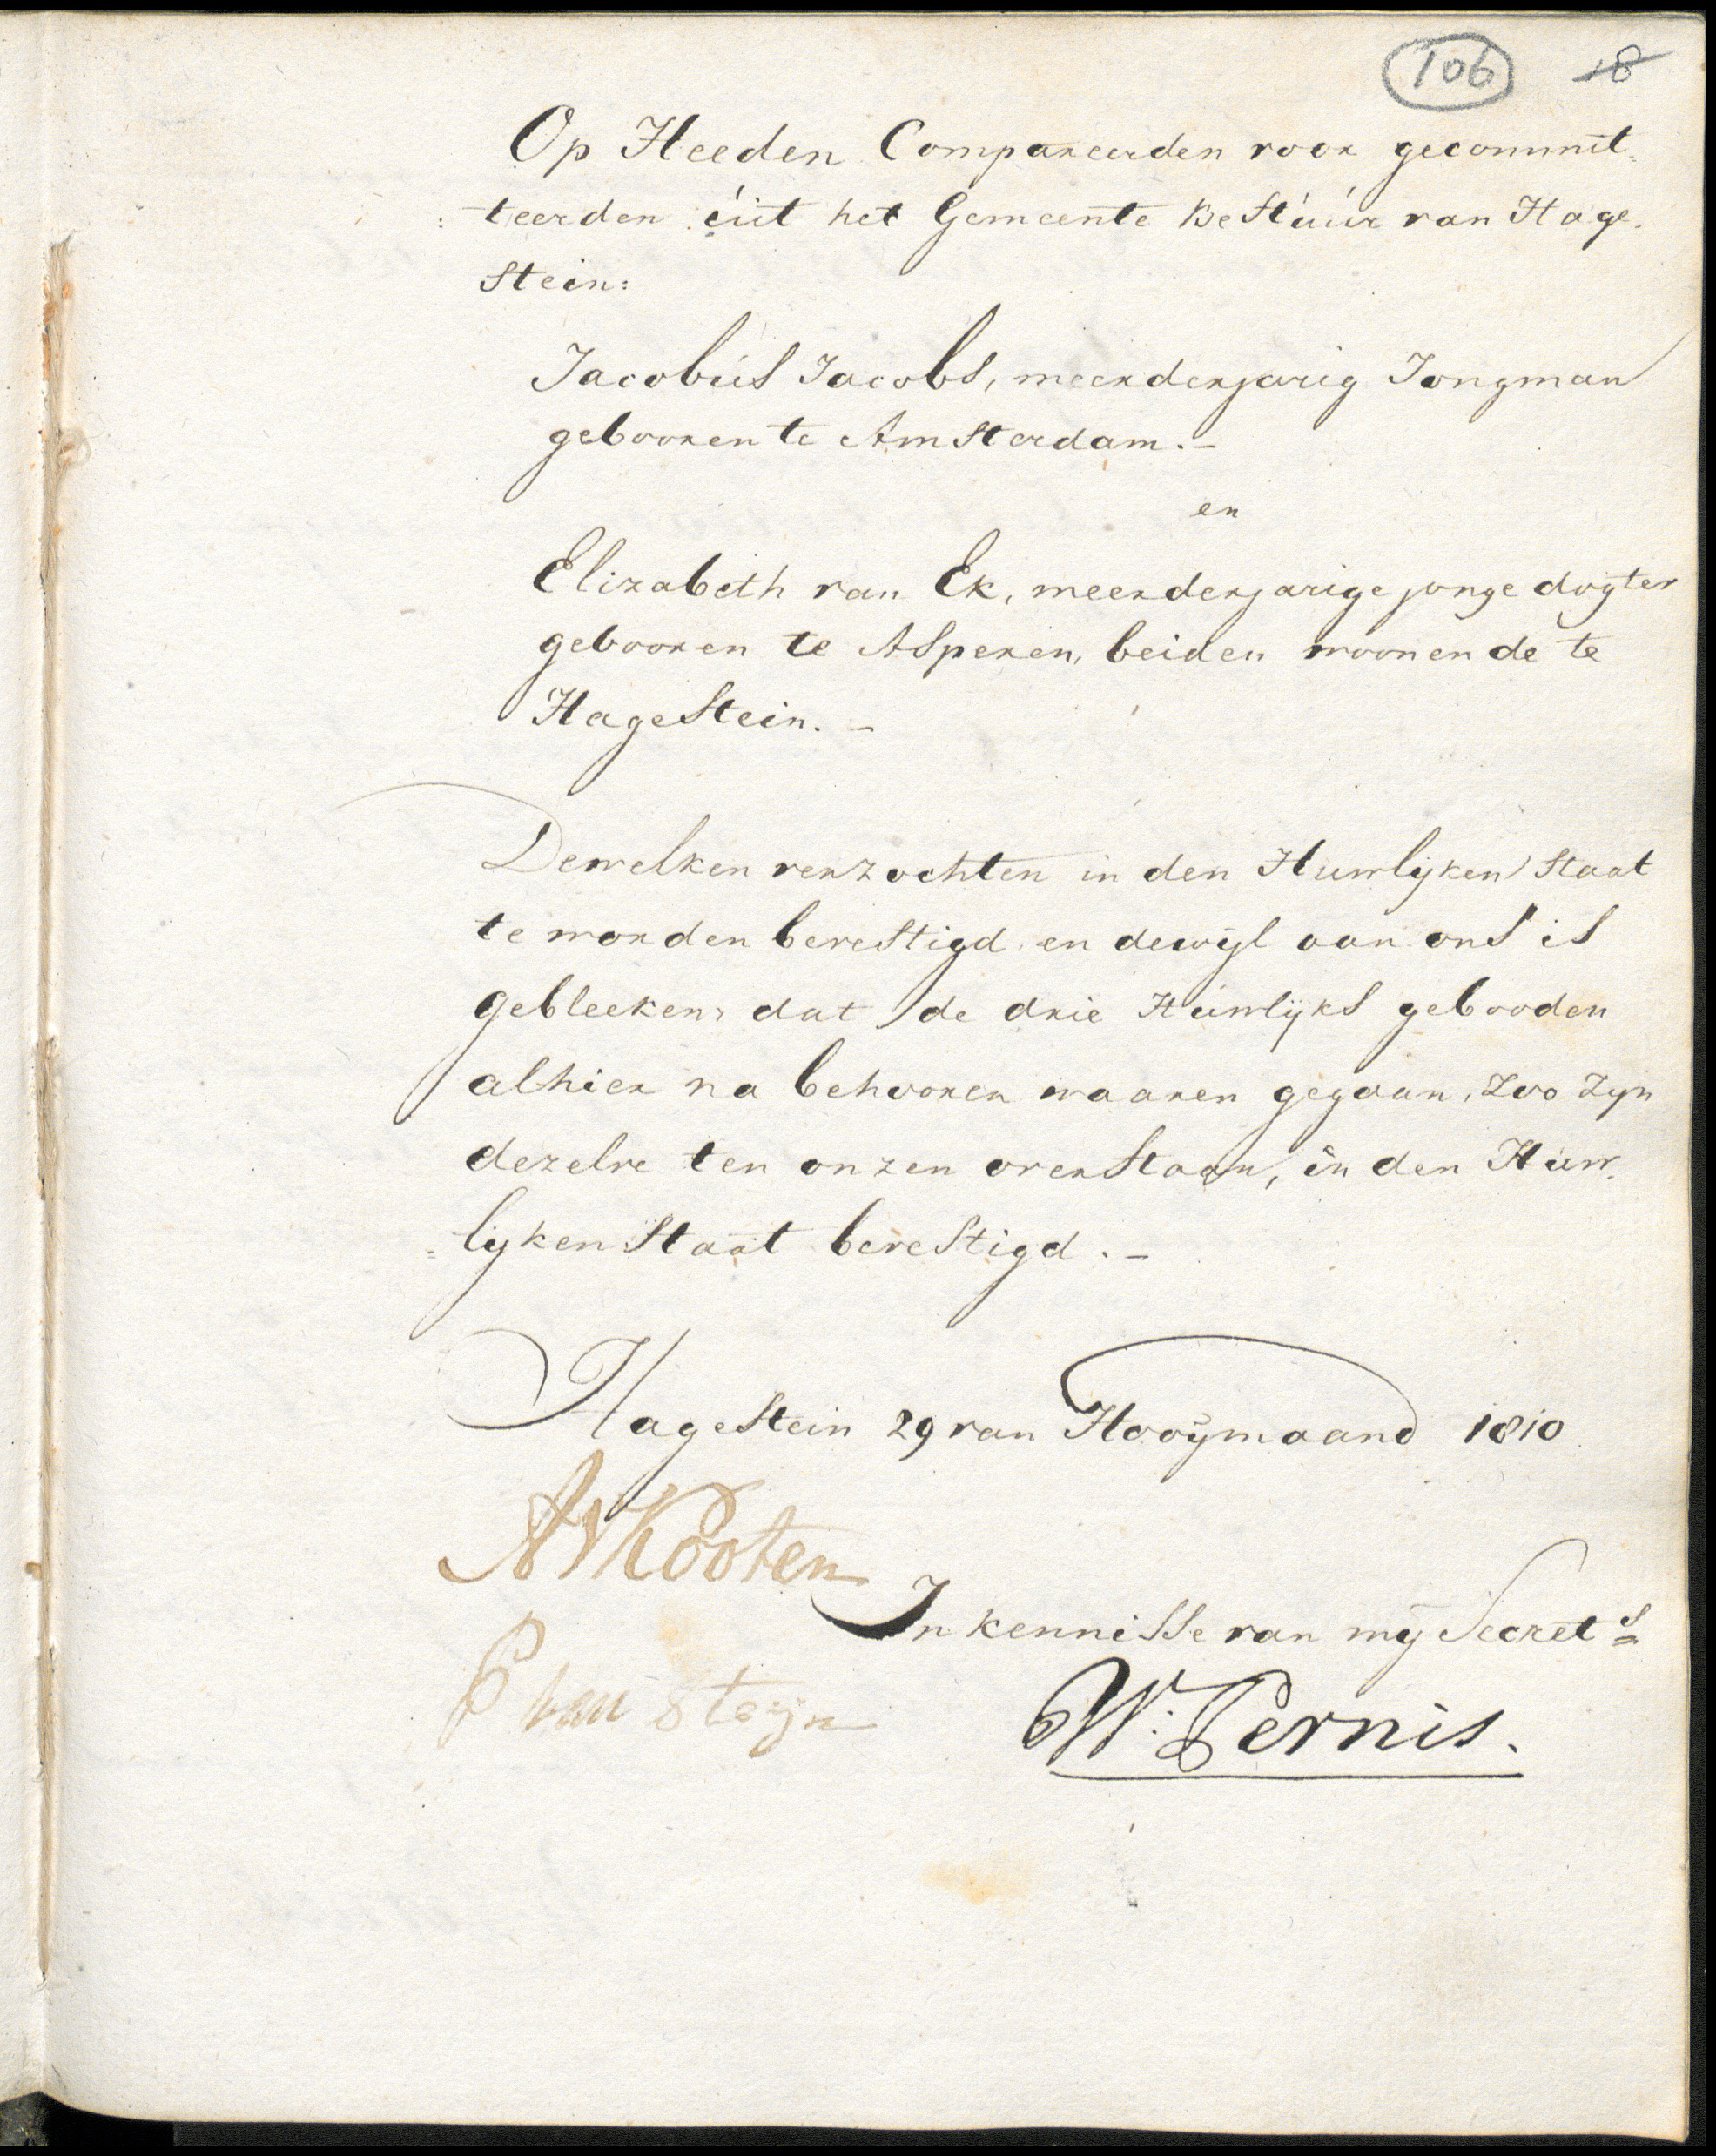 106 18
Op Heeden Compareerden voor gecommit=
:teerden uit het Gemeente Bestuur van Hage.
stein:
Jacobus Jacobs, meerderjarig Jongman
gebooren te Amsterdam.-
en
Elizabeth van Ek, meerderjarige jonge dogter
gebooren te Asperen, beiden woonende te
Hagestein.-
Dewelken verzochten in den Huwlijken Staat
te worden bevestigd, en dewijl aan ons is
gebleeken, dat de drie Huwlijks gebooden
alhier na behooren waaren gegaan, Zoo Zyn
dezelve ten onzen overstaan, in den Huw.
=lyken Staat bevestigd.-
Hagestein 29 van Hooijmaand 1810
AVKooten
In kennisse van mij Secrets
P van Steijn
W: Pernis.